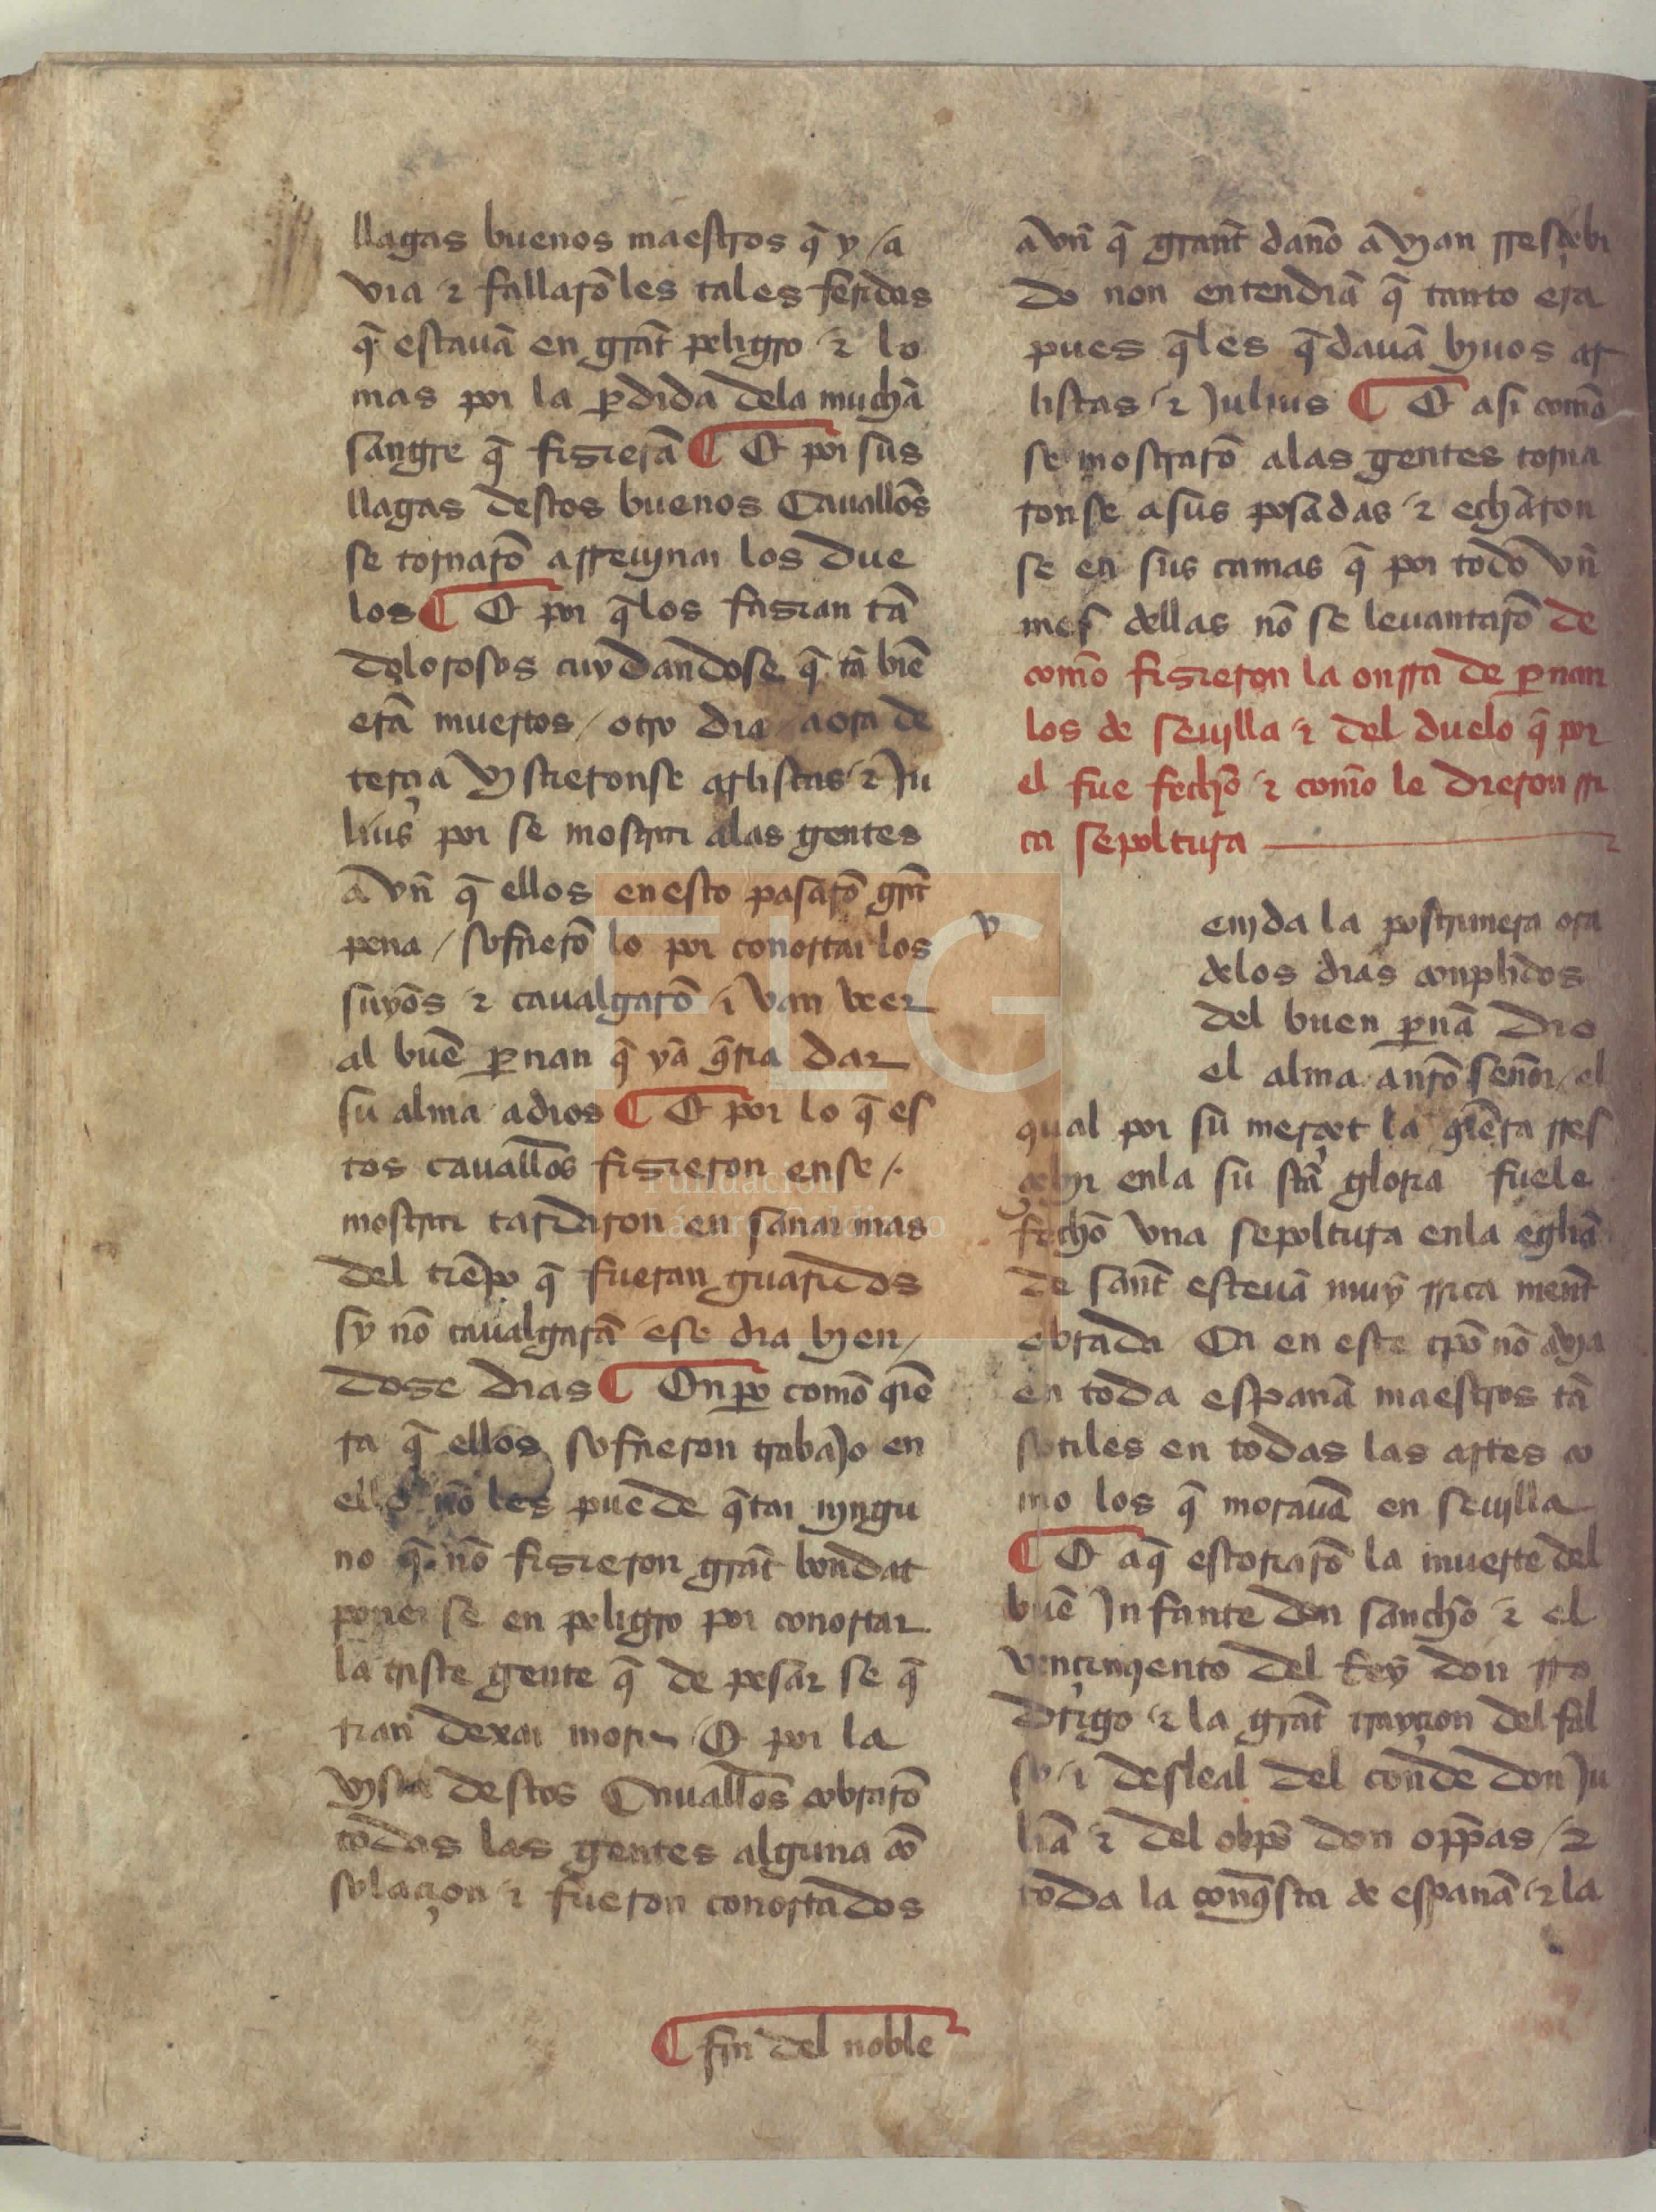 llagas buenos maestros q̃ y / a
via / ⁊ fallarõ les tales feridas
q̃ estauã en grãt peligro / ⁊ lo
mas por la ꝑdida dela muchã
sangre q̃ fizierã ¶ Et por sus
llagas destos buenos Cauallõs
se tornarõ a rreuynar los due
los ¶ Et por q̃ los fazian tã
dolorosos cuydandose q̃ tã biẽ
erã muertos / otro dia aora de
terçia vystieronse arlistas / ⁊ Ju
lius por se mostrar alas gentes
a vñ q̃ ellos en esto pasarõ grãt
pena / sofrierõ lo por conortar los
suyõs / ⁊ caualgarõ / i van veer
al buẽ ꝑnan q̃ yã q̃ria dar
su alma adios ¶ Et por lo q̃ es
tos cauallõs fizieron en se /
mostrar tardaron en sanar mas
del tiẽpo q̃ fueran guaridos
sy nõ caualgarã ese dia byen /
doze dias ¶ Onꝑo comõ q̃e
ra q̃ ellos sofrieron trabajo en
ello nõ les puede q̃tar nyngu
no q̃ nõ fizieron grãt bondat
poner se en peligro por conortar
la triste gente q̃ de pesar se q̃
rian dexar morir / Et por la
vysta destos Cauallõs cobrarõ
todas las gentes alguna cõ
solaçion ⁊ fueron conortados
a vñ q̃ grant̃ danõ a vyan rresçebi
do non entendiã q̃ tanto era
pues q̃ les q̃dauã byuos ar
listas / ⁊ Julius ¶ Et asi comõ
se mostrarõ alas gentes torna
ron se a sus posadas / ⁊ echãron
se en sus camas q̃ por todo vñ
mes dellas nõ se leuantarõ de
comõ fizieron la onrra de ꝑnan
los de seuylla / ⁊ del duelo q̃ por
el fue fechõ / ⁊ comõ le dieron rri
ca sepoltura
v enyda la postrimera ora
delos dias conplidos
del buen ꝑnã dio
el alma a nrõ señor / el
qual por su merçet la q̃era rres
çebyr enla su stã gloria fuele
fechõ vna sepoltura enla egliã
de sant̃ esteuã muỹ rrica ment̃
obrada Ca en este tpõ nõ avia
en toda espanã maestros tã
sotiles en todas las artes co
mo los q̃ morauã en seuylla
¶ Et aq̃ estoriarõ la muerte del
buẽ Jnfante don sanchõ / ⁊ el
vençimyento del Reỹ don rro
drigo / ⁊ la grãt trayçion del fal
so / i desleal del conde don Ju
liã ⁊ del obpõ don oppas / ⁊
toda la conq̃sta de espanã / ⁊ la
¶ fin del noble
FLG
Fundación
Lázaro Galdiano